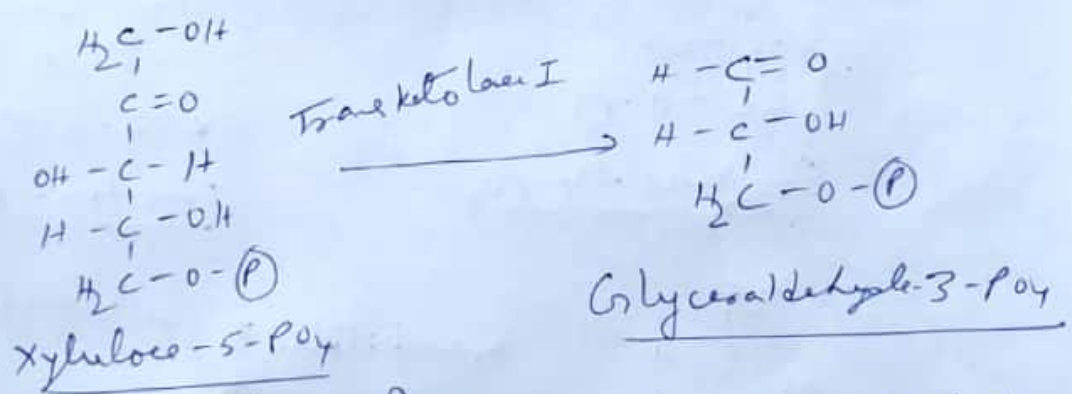 H₂C-OH
C=O
OH-C-H
H-C-OH
H₂C-O-Ⓟ
Xylulose-5-PO₄
Transketolase I
H-C=O
H-C-OH
H₂C-O-Ⓟ
Glyceraldehyde-3-PO₄